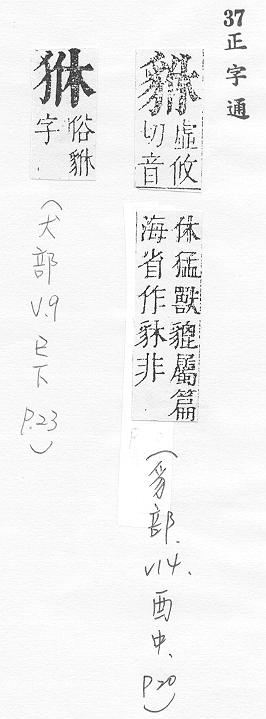 37正字通
貅
虛攸
切音
休猛獸貔屬篇
海省作 非
(豸部.v14.酉中.p20)
㹯
俗貅
字
(犬部 v.9 巳下 p.23)